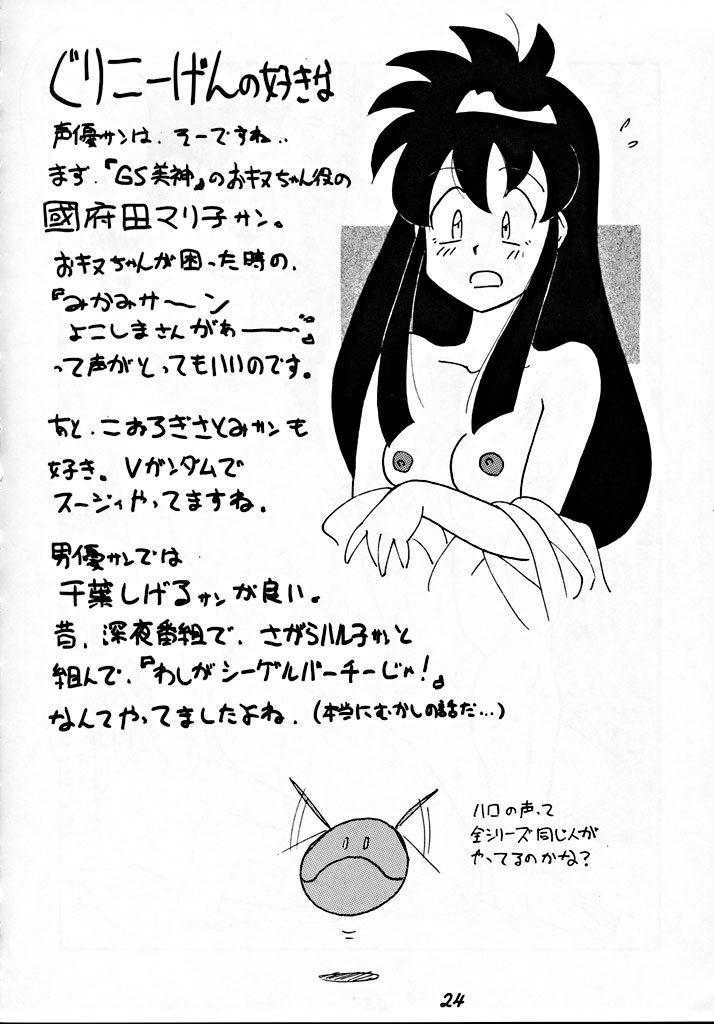 ぐりこーげんの好きな
声優サンは、そーですね..
まず、『GS美神』のおキヌちゃん役の
國府田マリ子サン。
おキヌちゃんが困った時の、
『みかみサ〜ン
よこしまさんがぁ――゛』
って声がとってもいいのです。
あと、こおろぎさとみサンも
好き。Vガンダムで
スージィやってますね。
男優サンでは
千葉しげるサンが良い。
昔、深夜番組で、さがらハル子サンと
組んで、『わしがシーゲルバーチーじゃ!』
なんてやってましたよね、(本当にむかしの話だ…)
ハロの声って
全シリーズ同じ人が
やってるのかな?
24